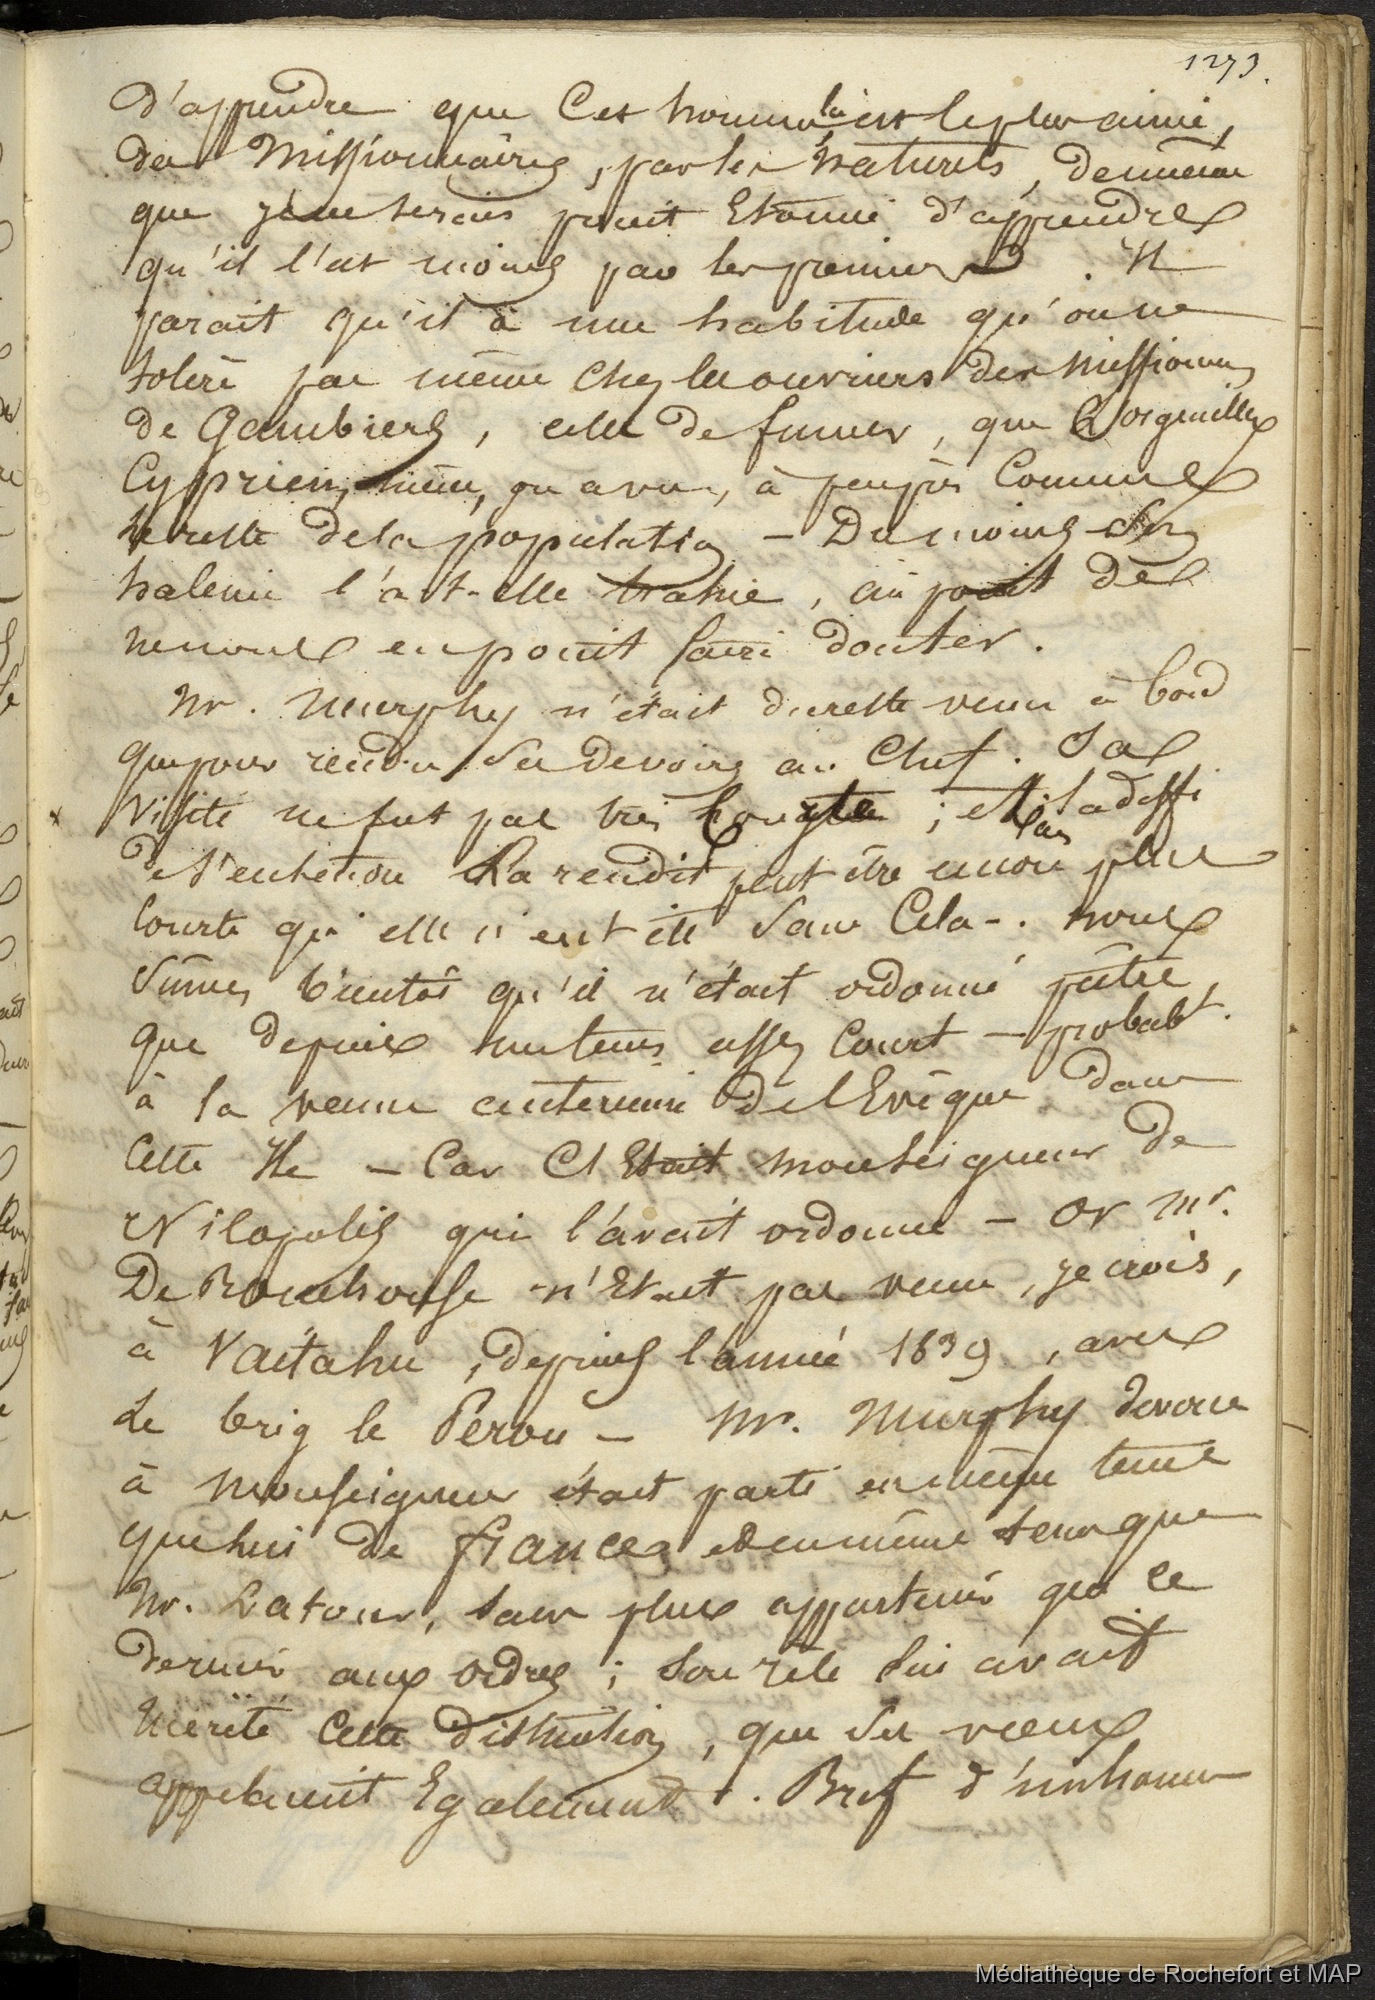 1273.
d'apprendre que Cet homme là est le plus aimé,
des Missionnaires, par les naturels, de même
que je ne serais point Etonné d'apprendre
qu'il l'est moins par les premiers. Il
parait qu'il à une habitude qu'on ne
tolère pas même chez les ouvriers des missions
de Gambiers, celle de fumer, que l'orgueilleux
Cyprien, même, on a vu, à peu près Comme
le reste de la population – Du moins Son
haleine l'a t-elle trahie, au point de
ne nous en point faire douter.
Mr. Murphy n'était du reste venu à bord
que pour rendre Ses devoirs au Chef. Sa
Visite ne fut pas très longue ; et la
de s'entretenir La rendit peut être encore plus
Courte qu'elle n'eut été Sans Cela –. nous
Sûmes bientôt qu'il n'était ordonné prêtre,
que depuis un tems assez Court – probabt.
à la venue antérieure de l'Evêque dans
Cette Ile – Car C'Etait monseigneur de
Nilopolis qui l'avait ordonné – or Mr.
De Rouchouse n'Etait pas venu, je crois,
à Vaïtahu, depuis l'année 1839, avec
Le brig le Perou – Mr. Murphy dévoué
à Monseigneur était parti en même tems
que lui de france et en même tems que
Mr. Latour, sans plus appartenir que ce
dernier aux ordres ; Son zèle lui avait
Mérité Cette distinction, que Ses vœux
appelaient Egalement. Bref d'un homme
Médiathèque de Rochefort et MAP